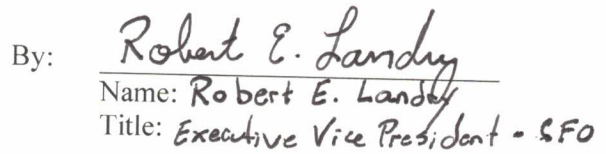 By: Robert E. Landry
Name: Robert E. Landry
Title: Executive Vice President - CFO